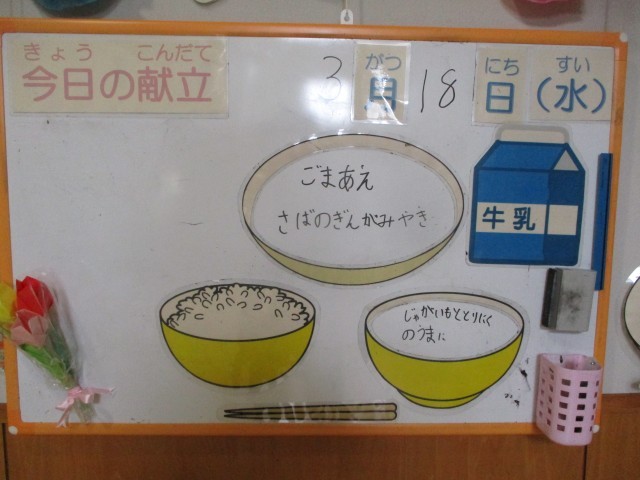 きょう こんだて
今日の献立
がつ にち すい
3月18日(水)
ごまあえ
さばのぎんがみやき
牛乳
じゃがいもととりにく
のうまに